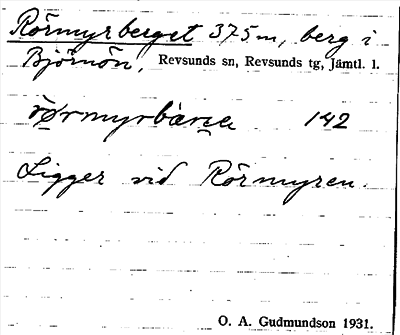 Rörmyrberget 375 m, berg i
Björnön, Revsunds sn, Revsunds tg, Jämtl. l.
142
Ligger vid Rörmyren.
O. A. Gudmundson 1931.